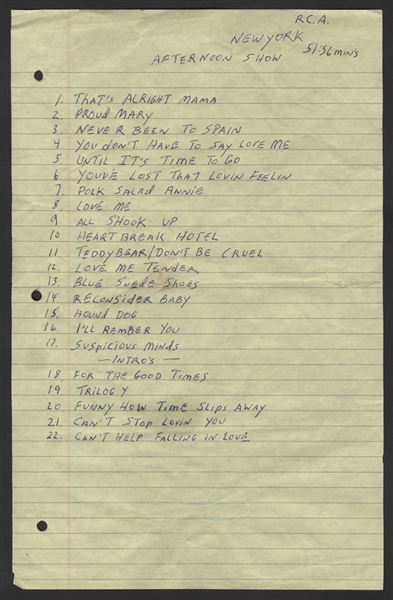 R.C.A.
NEW YORK
51:56 MINS
AFTERNOON SHOW
1. THAT'S ALRIGHT MAMA
2. PROUD MARY
3. NEVER BEEN TO SPAIN
4 YOU DON'T HAVE TO SAY LOVE ME
5 UNTIL IT'S TIME TO GO
6 YOU'VE LOST THAT LOVIN FEELIN
7. POLK SALAD ANNIE
8 LOVE ME
9 ALL SHOOK UP
10 HEARTBREAK HOTEL
11 TEDDYBEAR/DON'T BE CRUEL
12. LOVE ME TENDER
13. BLUE SUEDE SHOES
14 RECONSIDER BABY
15. HOUND DOG
16. I'LL REMBER YOU
17. SUSPICIOUS MINDS
— INTRO'S —
18 FOR THE GOOD TIMES
19. TRILOGY
20 FUNNY HOW TIME SLIPS AWAY
21. CAN'T STOP LOVIN YOU
22. CAN'T HELP FALLING IN LOVE